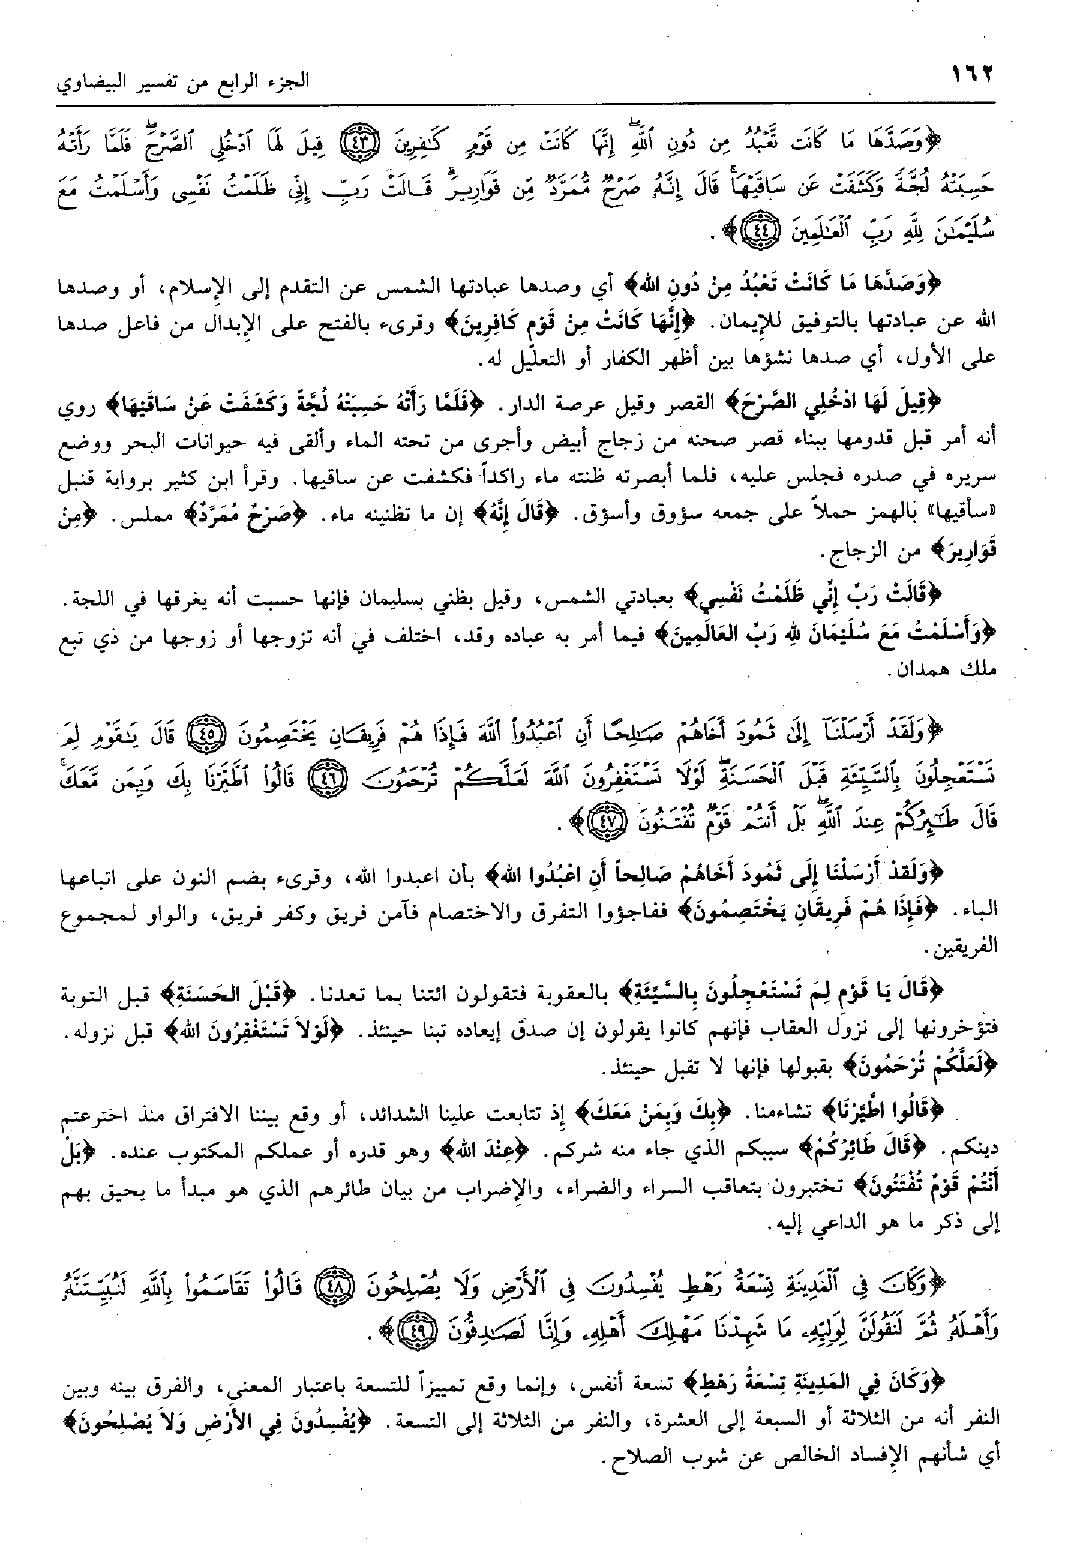 ١٦٢
الجزء الرابع من تفسير البيضاوي
﴿وَصَدَّهَا مَا كَانَت تَّعْبُدُ مِن دُونِ ٱللَّهِۖ إِنَّهَا كَانَتْ مِن قَوْمٍ كَٰفِرِينَ ﴿٤٣﴾ قِيلَ لَهَا ٱدْخُلِى ٱلصَّرْحَۖ فَلَمَّا رَأَتْهُ
حَسِبَتْهُ لُجَّةً وَكَشَفَتْ عَن سَاقَيْهَاۚ قَالَ إِنَّهُۥ صَرْحٌ مُّمَرَّدٌ مِّن قَوَارِيرَۗ قَالَتْ رَبِّ إِنِّى ظَلَمْتُ نَفْسِى وَأَسْلَمْتُ مَعَ
سُلَيْمَٰنَ لِلَّهِ رَبِّ ٱلْعَٰلَمِينَ ﴿٤٤﴾﴾.
﴿وَصَدَّهَا مَا كَانَتْ تَعْبُدُ مِنْ دُونِ الله﴾ أي وصدها عبادتها الشمس عن التقدم إلى الإسلام، أو وصدها
الله عن عبادتها بالتوفيق للإيمان. ﴿إِنَّهَا كَانَتْ مِنْ قَوْمٍ كَافِرِينَ﴾ وقرىء بالفتح على الإبدال من فاعل صدها
على الأول، أي صدها نشؤها بين أظهر الكفار أو التعليل له.
﴿قِيلَ لَهَا ادْخُلِي الصَّرْحَ﴾ القصر وقيل عرصة الدار. ﴿فَلَمَّا رَأَتْهُ حَسِبَتْهُ لُجَّةً وَكَشَفَتْ عَنْ سَاقَيْهَا﴾ روي
أنه أمر قبل قدومها ببناء قصر صحنه من زجاج أبيض وأجرى من تحته الماء وألقى فيه حيوانات البحر ووضع
سريره في صدره فجلس عليه، فلما أبصرته ظنته ماء راكداً فكشفت عن ساقيها. وقرأ ابن كثير برواية قنبل
«سأقيها» بالهمز حملاً على جمعه سؤوق وأسؤق. ﴿قَالَ إِنَّهُ﴾ إن ما تظنينه ماء. ﴿صَرْحٌ مُمَرَّدٌ﴾ مملس. ﴿مِنْ
قَوَارِيرَ﴾ من الزجاج.
﴿قَالَتْ رَبِّ إِنِّي ظَلَمْتُ نَفْسِي﴾ بعبادتي الشمس، وقيل بظني بسليمان فإنها حسبت أنه يغرقها في اللجة.
﴿وَأَسْلَمْتُ مَعَ سُلَيْمَانَ لله رَبِّ العَالَمِينَ﴾ فيما أمر به عباده وقد، اختلف في أنه تزوجها أو زوجها من ذي تبع
ملك همدان.
﴿وَلَقَدْ أَرْسَلْنَآ إِلَىٰ ثَمُودَ أَخَاهُمْ صَٰلِحًا أَنِ ٱعْبُدُوا۟ ٱللَّهَ فَإِذَا هُمْ فَرِيقَانِ يَخْتَصِمُونَ ﴿٤٥﴾ قَالَ يَٰقَوْمِ لِمَ
تَسْتَعْجِلُونَ بِٱلسَّيِّئَةِ قَبْلَ ٱلْحَسَنَةِۖ لَوْلَا تَسْتَغْفِرُونَ ٱللَّهَ لَعَلَّكُمْ تُرْحَمُونَ ﴿٤٦﴾ قَالُوا۟ ٱطَّيَّرْنَا بِكَ وَبِمَن مَّعَكَۚ
قَالَ طَٰٓئِرُكُمْ عِندَ ٱللَّهِۖ بَلْ أَنتُمْ قَوْمٌ تُفْتَنُونَ ﴿٤٧﴾﴾.
﴿وَلَقَدْ أَرْسَلْنَا إِلَى ثَمُودَ أَخَاهُمْ صَالِحاً أَنِ اعْبُدُوا الله﴾ بأن اعبدوا الله، وقرىء بضم النون على اتباعها
الباء. ﴿فَإِذَا هُمْ فَرِيقَانِ يَخْتَصِمُونَ﴾ ففاجؤوا التفرق والاختصام فآمن فريق وكفر فريق، والواو لمجموع
الفريقين.
﴿قَالَ يَا قَوْمِ لِمَ تَسْتَعْجِلُونَ بِالسَّيِّئَةِ﴾ بالعقوبة فتقولون ائتنا بما تعدنا. ﴿قَبْلَ الحَسَنَةِ﴾ قبل التوبة
فتؤخرونها إلى نزول العقاب فإنهم كانوا يقولون إن صدق إيعاده تبنا حينئذ. ﴿لَوْلاَ تَسْتَغْفِرُونَ الله﴾ قبل نزوله.
﴿لَعَلَّكُمْ تُرْحَمُونَ﴾ بقبولها فإنها لا تقبل حينئذ.
﴿قَالُوا اطَّيَّرْنَا﴾ تشاءمنا. ﴿بِكَ وَبِمَنْ مَعَكَ﴾ إذ تتابعت علينا الشدائد، أو وقع بيننا الافتراق منذ اخترعتم
دينكم. ﴿قَالَ طَائِرُكُمْ﴾ سببكم الذي جاء منه شركم. ﴿عِنْدَ الله﴾ وهو قدره أو عملكم المكتوب عنده. ﴿بَلْ
أَنْتُمْ قَوْمٌ تُفْتَنُونَ﴾ تختبرون بتعاقب السراء والضراء، والإضراب من بيان طائرهم الذي هو مبدأ ما يحيق بهم
إلى ذكر ما هو الداعي إليه.
﴿وَكَانَ فِى ٱلْمَدِينَةِ تِسْعَةُ رَهْطٍ يُفْسِدُونَ فِى ٱلْأَرْضِ وَلَا يُصْلِحُونَ ﴿٤٨﴾ قَالُوا۟ تَقَاسَمُوا۟ بِٱللَّهِ لَنُبَيِّتَنَّهُۥ
وَأَهْلَهُۥ ثُمَّ لَنَقُولَنَّ لِوَلِيِّهِۦ مَا شَهِدْنَا مَهْلِكَ أَهْلِهِۦ وَإِنَّا لَصَٰدِقُونَ ﴿٤٩﴾﴾.
﴿وَكَانَ فِي المَدِينَةِ تِسْعَةُ رَهْطٍ﴾ تسعة أنفس، وإنما وقع تمييزاً للتسعة باعتبار المعنى، والفرق بينه وبين
النفر أنه من الثلاثة أو السبعة إلى العشرة، والنفر من الثلاثة إلى التسعة. ﴿يُفْسِدُونَ فِي الأَرْضِ وَلاَ يُصْلِحُونَ﴾
أي شأنهم الإفساد الخالص عن شوب الصلاح.